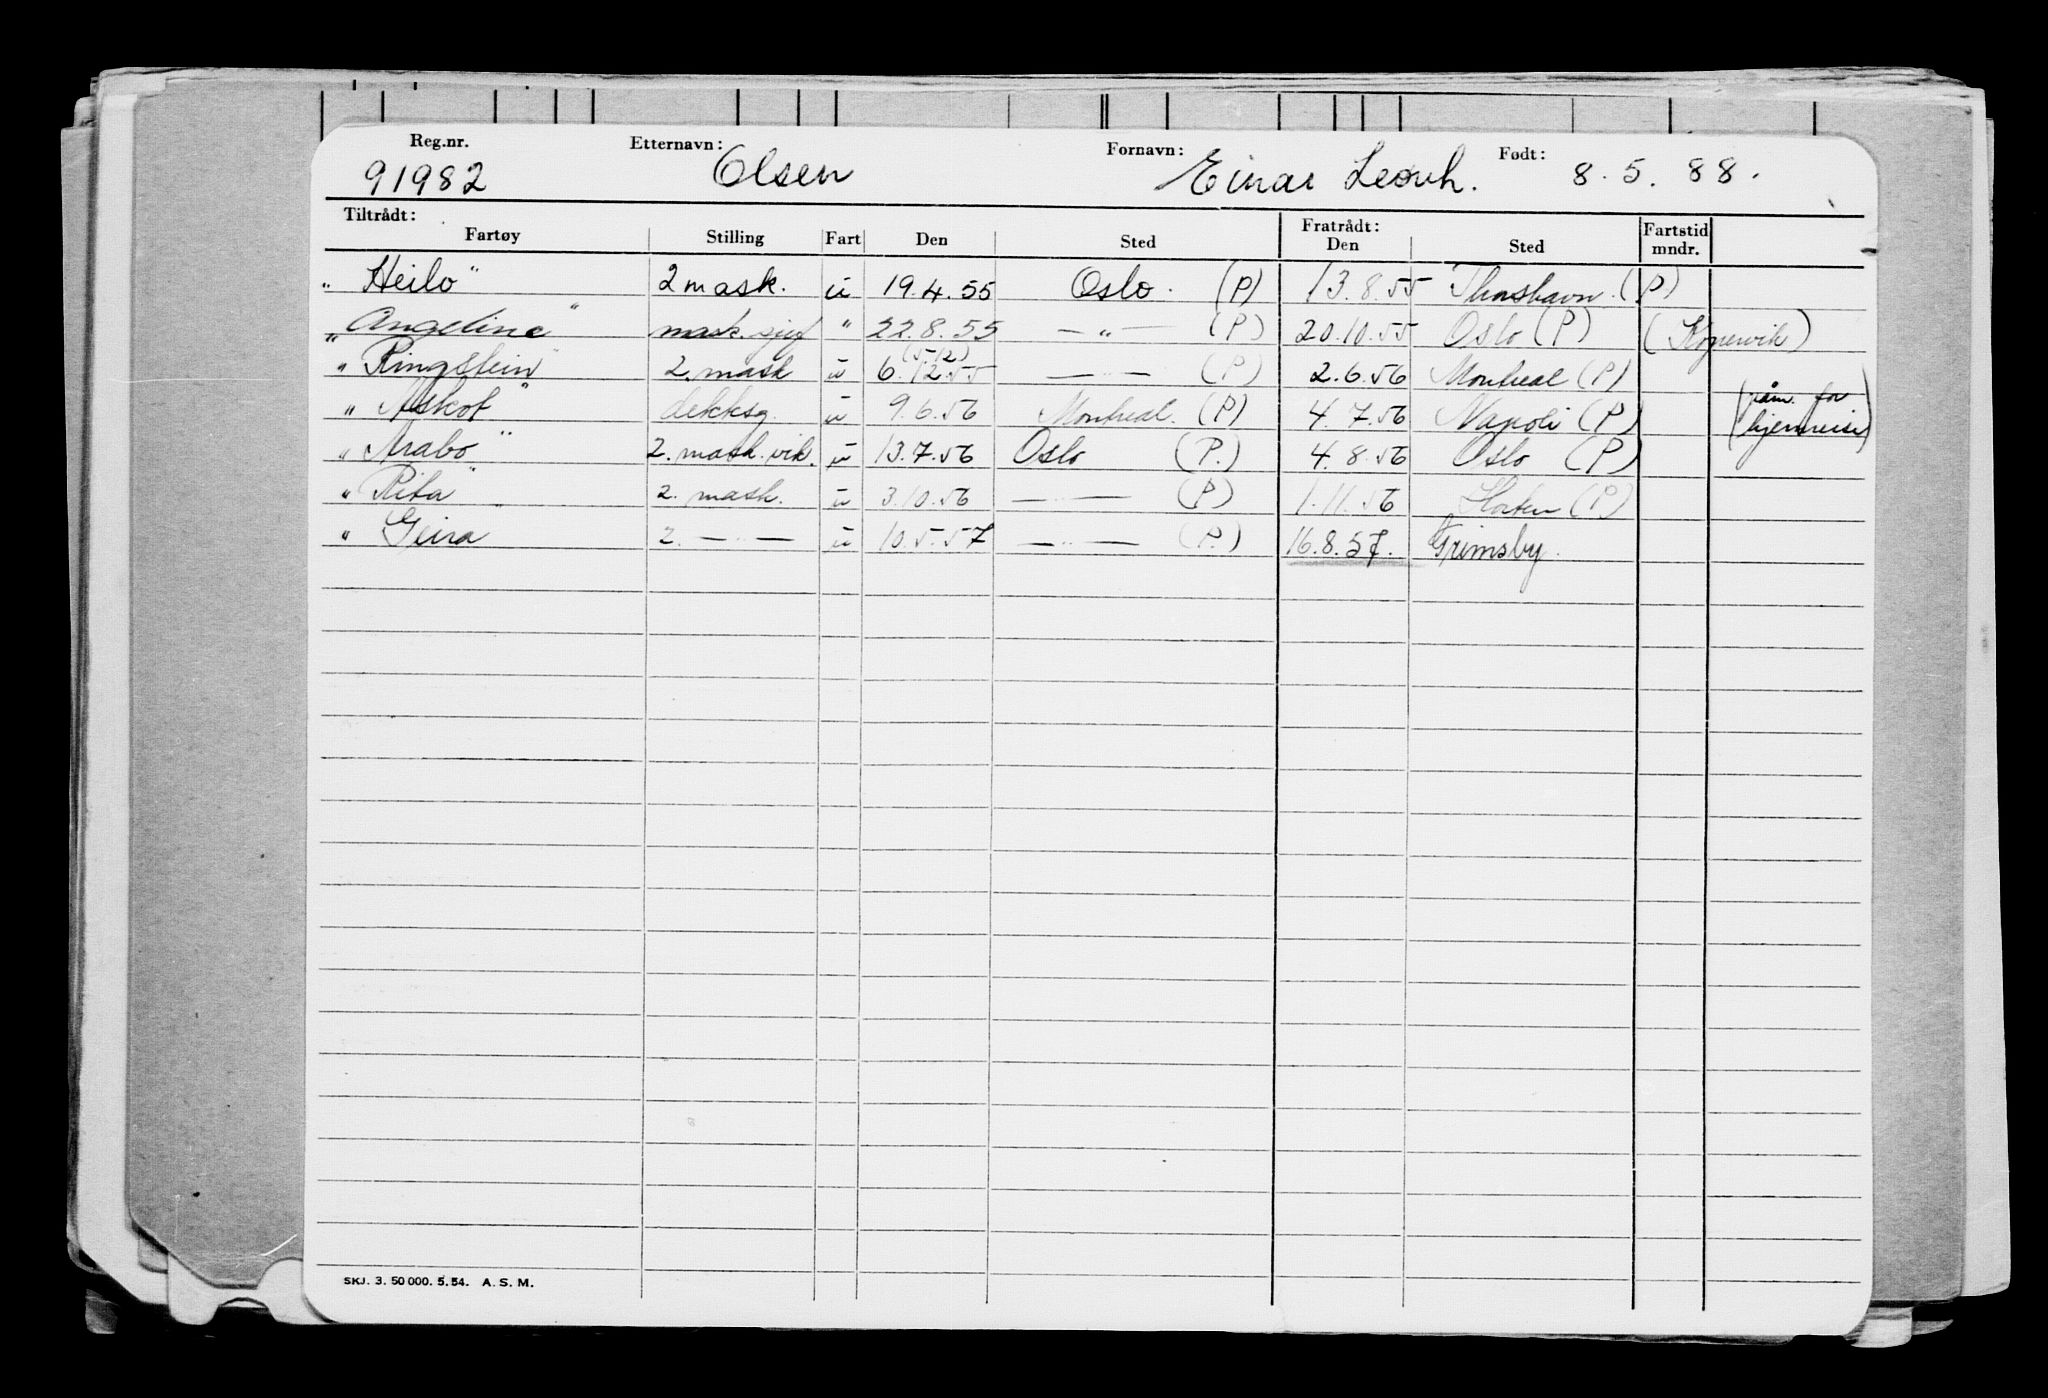 Reg.nr. Etternavn: Fornavn: Født:
91982 Olsen Einar Leonh. 8.5.88.
Tiltrådt: Fratrådt: Fartstid
Fartøy Stilling Fart Den Sted Den Sted mndr.
" Heilo " 2 mask. u 19.4.55 Oslo. (P) 13.8.55 Thorshavn. (P)
" Angeline " mask.sjef " 22.8.55 — " — (P) 20.10.55 Oslo (P) (Kopervik)
" Ringstein " 2. mask u 6.12.55 (5.12) — " — (P) 2.6.56 Montreal (P)
" Askot " dekksg. u 9.6.56 Montreal. (P) 4.7.56 Napoli (P) ( for hjemreise)
" Arabo " 2. mask. vik. u 13.7.56 Oslo (P.) 4.8.56 Oslo (P)
" Rita " 2. mask. u 3.10.56 — " — (P) 1.11.56 Horten (P)
" Geira " 2. — " — u 10.5.57 — " — (P.) 16.8.57. Grimsby.
SKJ. 3. 50 000. 5. 54. A. S. M.